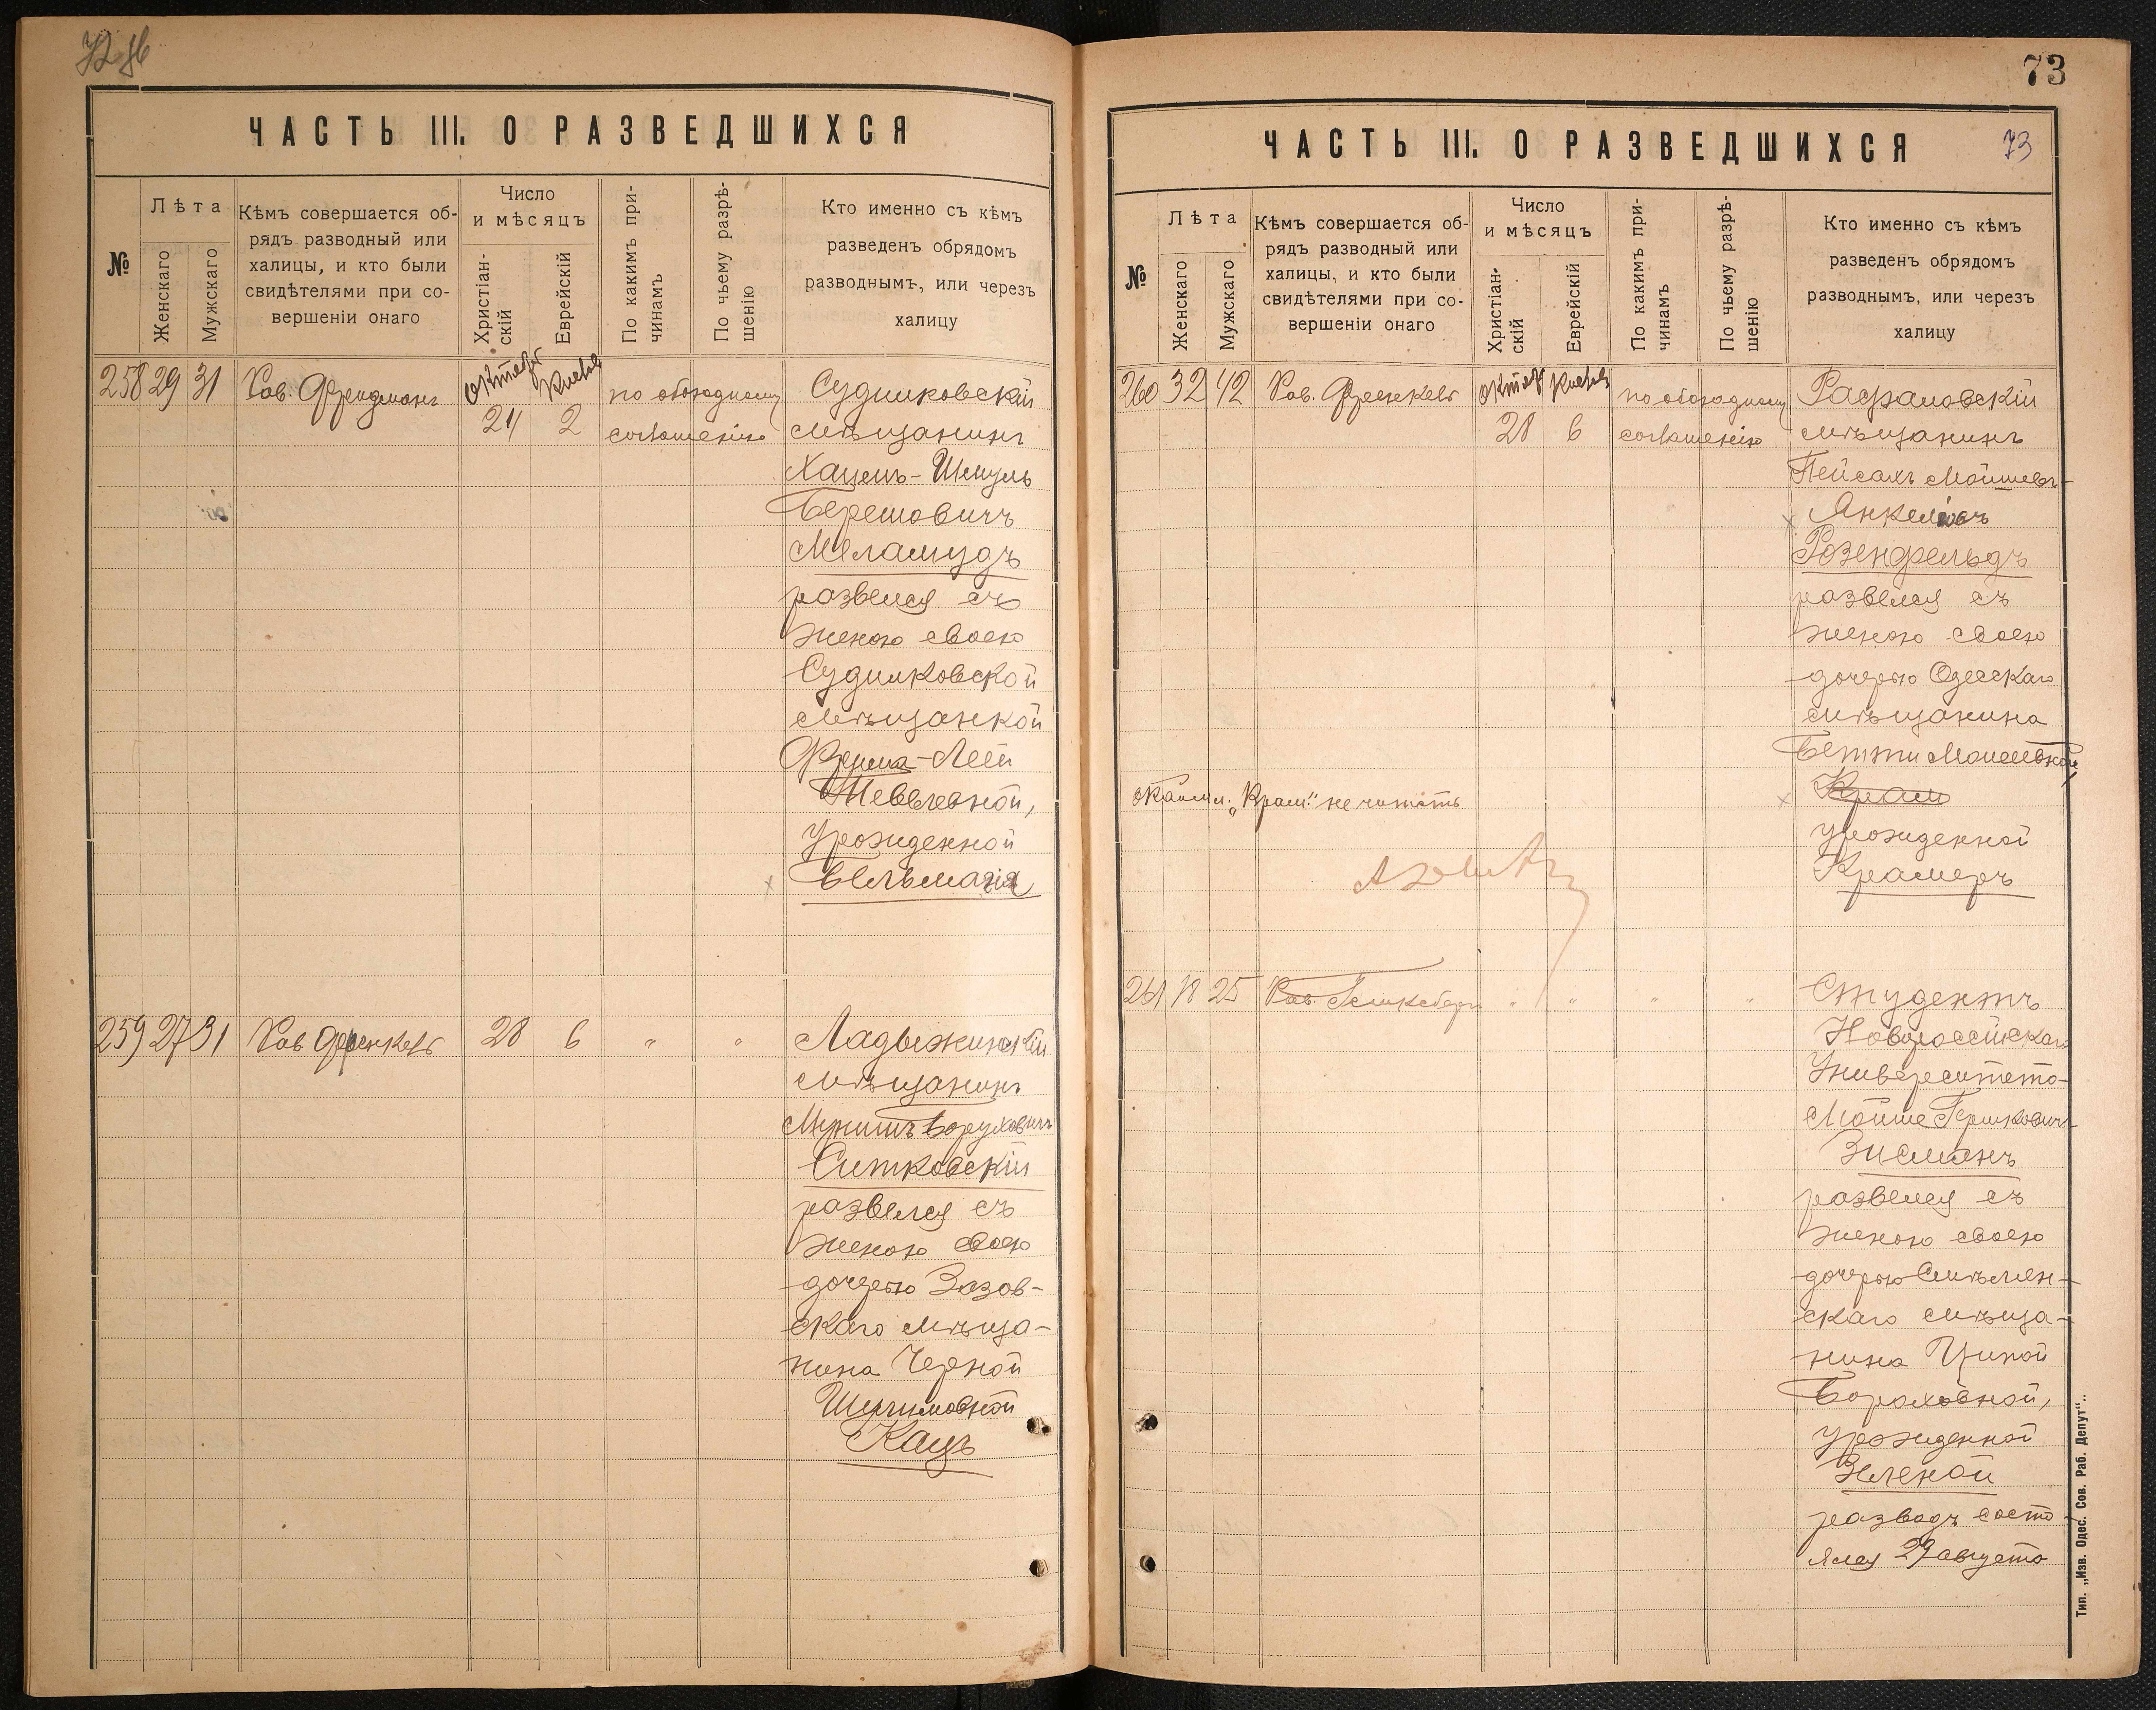 ЧАСТЬ III. О РАЗВЕДШИХСЯ
№
Лѣта
Женскаго
Мужскаго
Кѣмъ совершается об-
рядъ разводный или
халицы, и кто были
свидѣтелями при со-
вершеніи онаго
Число
и мѣсяцъ
Христіан-
скій
Еврейскій
По какимъ при-
чинамъ
По чьему разрѣ-
шенію
Кто именно съ кѣмъ
разведенъ обрядомъ
разводнымъ, или черезъ
халицу
258 29 31 Рав. Фридманъ Октяб Кислев по обоюдному Судилковскій
24 2 соглашенію мѣщанинъ
Хацель-Шмуль
Берешовичъ
Меламудъ
развелся съ
женою своею
Судилковской
мѣщанкой
Фрума-Леей
Шевелевной,
урожденной
259 27 31 Рав Френкель 28 6 " " Ладыжинскій
мѣщанинъ
Боруховичъ
Ситковскій
развелся съ
женою своею
дочерью Вазов-
скаго мѣща-
нина Черной
Кацъ
73
ЧАСТЬ III. О РАЗВЕДШИХСЯ 73
№
Лѣта
Женскаго
Мужскаго
Кѣмъ совершается об-
рядъ разводный или
халицы, и кто были
свидѣтелями при со-
вершеніи онаго
Число
и мѣсяцъ
Христіан-
скій
Еврейскій
По какимъ при-
чинамъ
По чьему разрѣ-
шенію
Кто именно съ кѣмъ
разведенъ обрядомъ
разводнымъ, или черезъ
халицу
260 32 42 Рав. Френкель Октяб Кислев по обоюдному Рафаловскій
28 6 соглашенію мѣщанинъ
Пейсахъ Мойшевъ-
Янкелевъ
Розенфельдъ
развелся съ
женою своею
дочерью Одесскаго
мѣщанина
Бетти Моисеевной
Крам
"Крам." не читать
урожденной
Крамеръ
261 18 25 Рав. " " " " Студентъ
Новороссійскаго
Университета
Мойше Гершковичъ
Зисманъ
развелся съ
женою своею
дочерью Смѣлян-
скаго мѣща-
нина Ципой
Бороховной,
урожденной
Зеленой
разводъ состо
ялся 29 августа
Тип. „Изв. Одес. Сов. Раб. Депут“..